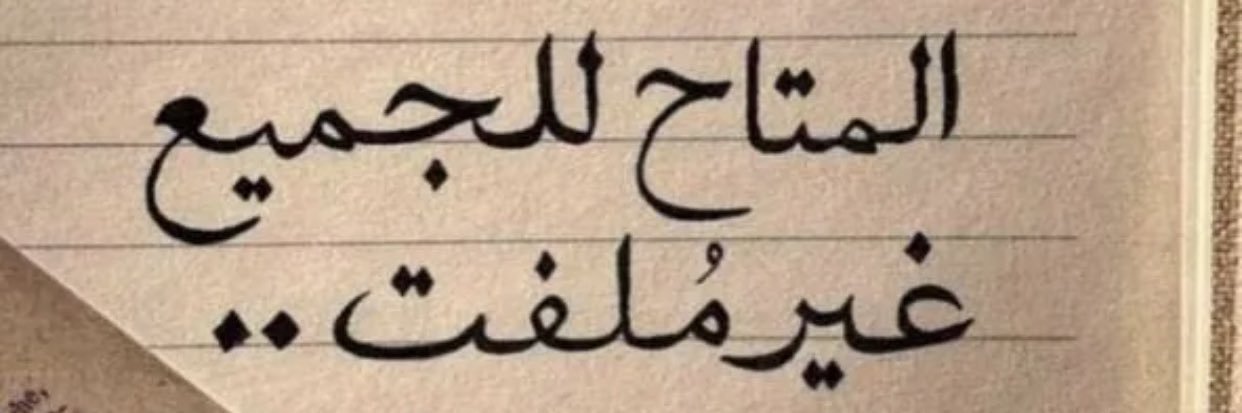 المتاح للجميع
غير مُلفت ..